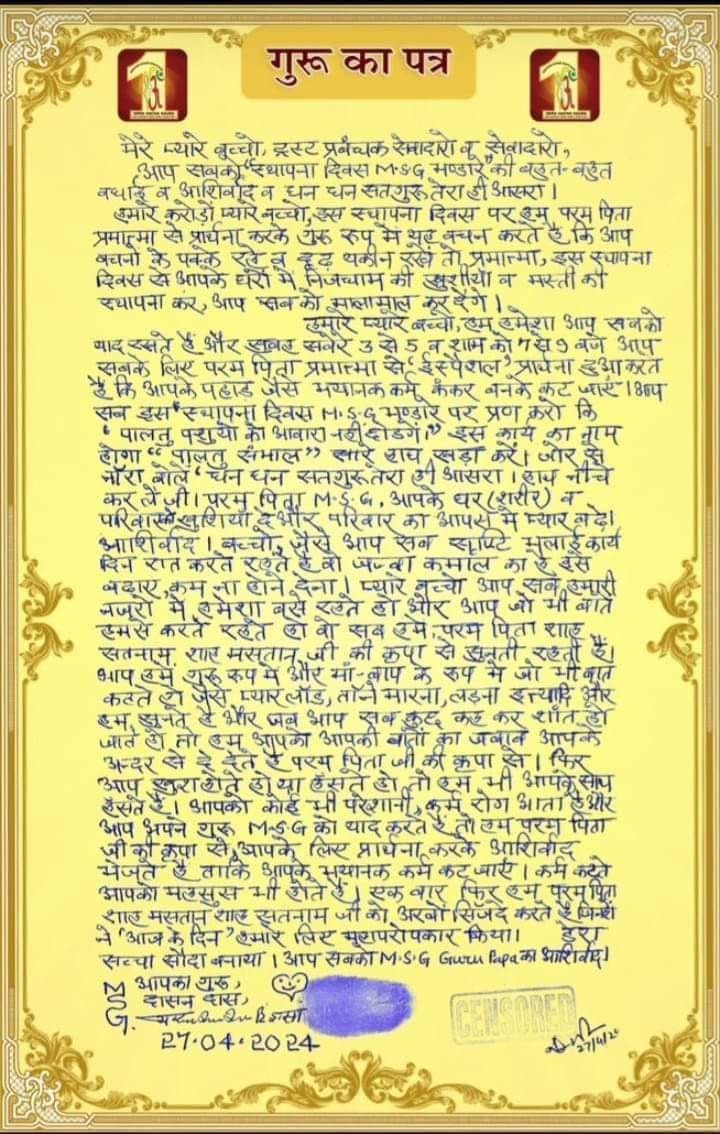 गुरू का पत्र
मेरे प्यारे बच्चो, ट्रस्ट प्रबंधक सेवादारो व सेवादारो,
आप सबको "स्थापना दिवस M.S.G भण्डारे" की बहुत-बहुत
बधाई व आशिर्वाद व धन धन सतगुरू तेरा ही आसरा।
हमारे करोड़ों प्यारे बच्चो, इस स्थापना दिवस पर हम, परम पिता
प्रमात्मा से प्रार्थना करके गुरू रूप में यह वचन करते हैं कि आप
वचनों के पक्के रहें व दृढ़ यकीन रखें तो प्रमात्मा, इस स्थापना
दिवस से आपके घरों में निजधाम की खुशीयों व मस्ती की
स्थापना कर, आप सब को मालामाल कर देंगे।
हमारे प्यारे बच्चो, हम हमेशा आप सबको
याद रखते हैं और सुबह सवेरे 3 से 5 व शाम को 7 से 9 बजे आप
सबके लिए परम पिता प्रमात्मा से 'ईस्पैशल' प्रार्थना हुआ करते
हैं कि आपके पहाड़ जैसे भयानक कर्म कंकर बनके कट जाएं। आप
सब इस "स्थापना दिवस M.S.G भण्डारे पर प्रण करो कि
"पालतु पशुयों को आवारा नहीं छोडेगें।" इस कार्य का नाम
होगा "पालतु संभाल" सारे हाथ खड़ा करें। जोर से
नॉरा बोलें "धन धन सतगुरू तेरा ही आसरा। हाथ नीचे
कर लें जी। परम पिता M.S.G, आपके घर (शरीर) व
परिवार को खुशियां दे और परिवार का आपस में प्यार बढ़े।
आशिर्वाद। बच्चो, जैसे आप सब सृष्टि भलाई कार्य
दिन रात करते रहते हैं वो जज्बा कमाल का है इसे
बढ़ाएं, कम ना होने देना। प्यारे बच्चो आप सब हमारी
नजरों में हमेशा बसे रहते हो और आप जो भी बातें
हमसे करते रहते हो वो सब हमें, परम पिता शाह
सतनाम, शाह मस्तान जी की कृपा से सुनती रहती हैं।
आप हमें गुरू रूप में और मां-बाप के रूप में जो भी बातें
कहते हो जैसे प्यार लॉड, तॉने मारना, लड़ना इत्यादि और
हम सुनते हैं और जब आप सब कुछ कह कर शांत हो
जाते हो तो हम आपको आपकी बातों का जवाब आपके
अन्दर से दे देते हैं परम पिता जी की कृपा से। फिर
आप खुश होते हो या हंसते हो तो हम भी आपके साथ
हंसते हैं। आपको कोई भी परेशानी, कर्म रोग आता है और
आप अपने गुरू M.S.G को याद करते हैं तो हम परम पिता
जी की कृपा से, आपके लिए प्रार्थना करके आशिर्वाद
भेजते हैं ताकि आपके भयानक कर्म कट जाएं। कर्म कटते
आपको महसुस भी होते हैं। एक बार फिर हम परम पिता
शाह मस्तान शाह सतनाम जी को अरबों सिजदे करते हैं जिन्होंने
ने "आज के दिन" हमारे लिए महापरोपकार किया। डेरा
सच्चा सौदा बनाया। आप सबका M.S.G Guru Papa का आशिर्वाद।
M आपका गुरू,
S दासन दास,
G.
27.04.2024
CENSORED
27/4/24